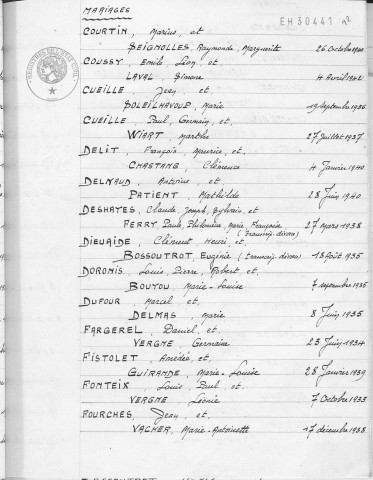 MARIAGES
EH30441 n°2
COURTIN, Marius, et
SEIGNOLLES, Raymonde, Marguerite 26 Octobre
COUSSY, Emile Léon, et
LAVAL, Simone 4 Avril
CUEILLE, Jean et,
SOLEILHAVOUP, Marie 19 Septembre 1936
CUEILLE, Paul, Germain, et,
WIART, Marthe 27 Juillet 1937
DELIT, François, Maurice, et,
CHASTANG, Clémence 4 Janvier 1940
DELNAUD, Antoine et,
PATIENT, Mathilde 28 Juin 1940
DESHAYES, Claude, Joseph, Sylvain, et
FERRY, Paule, Philomène, Marie, Françoise 27 mars 1938
(transcrip. divorce)
DIEUAIDE, Clément, Henri, et,
BOSSOUTROT, Eugénie (transcrip. divorce) 18 Août 1935
DORONIS, Louis, Pierre, Robert, et,
BOUYOU, Marie-Louise 7 septembre 1935
DUFOUR, Marcel et,
DELMAS, Marie 8 Juin 1935
FARGEREL, Daniel, et,
VERGNE, Germaine 23 Juin 1934
FISTOLET, Amédée, et,
GUIRANDE, Marie-Louise 28 Janvier 1939
FONTEIX, Louis, Paul, et,
VERGNE, Léonie 7 Octobre 1933
FOURCHES, Jean, et,
VACHER, Marie-Antoinette 17 décembre 1938